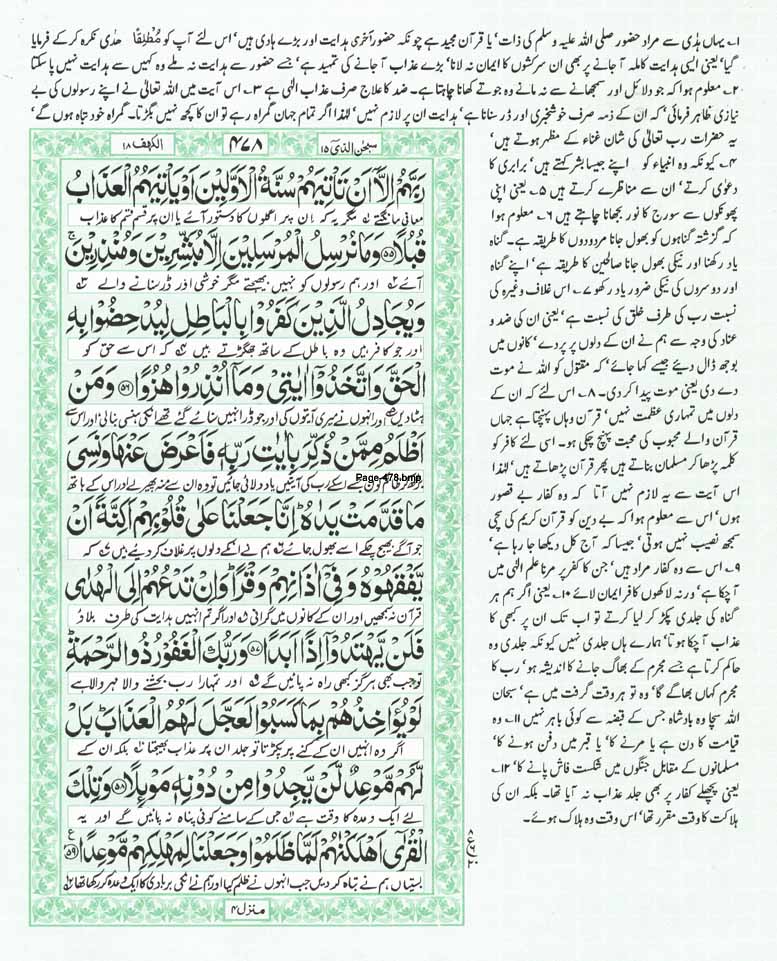 ۱۔ یہاں ہدٰی سے مراد حضور صلی اللہ علیہ وسلم کی ذات' یا قرآن مجید ہے چونکہ حضور آخری ہدایت اور بڑے ہادی ہیں' اس لئے آپ کو مُطْلِقًا ھدٰی نکرہ کرکے فرمایا
گیا' یعنی ایسی ہدایت کاملہ آ جانے پر بھی ان سرکشوں کا ایمان نہ لانا' بڑے عذاب آ جانے کی تمہید ہے' جسے حضور سے ہدایت نہ ملے وہ کہیں سے ہدایت نہیں پا سکتا
۲۔ معلوم ہوا کہ جو دلائل اور سمجھانے سے نہ مانے وہ جوتے کھانا چاہتا ہے۔ ضد کا علاج صرف عذاب الٰہی ہے ۳۔ اس آیت میں اللہ تعالیٰ نے اپنے رسولوں کی بے
نیازی ظاہر فرمائی' کہ ان کے ذمہ صرف خوشخبری اور ڈر سنانا ہے' ہدایت ان پر لازم نہیں' لہٰذا اگر تمام جہان گمراہ رہے تو ان کا کچھ نہیں بگڑتا۔ گمراہ خود تباہ ہوں گے'
یہ حضرات رب تعالیٰ کی شان غناء کے مظہر ہوتے ہیں'
۴۔ کیونکہ وہ انبیاء کو اپنے جیسا بشر کہتے ہیں' برابری کا
دعوٰی کرتے' ان سے مناظرے کرتے ہیں ۵۔ یعنی اپنی
پھونکوں سے سورج کا نور بجھانا چاہتے ہیں ۶۔ معلوم ہوا
کہ گزشتہ گناہوں کو بھول جانا مردودوں کا طریقہ ہے۔ گناہ
یاد رکھنا اور نیکی بھول جانا صالحین کا طریقہ ہے' اپنے گناہ
اور دوسروں کی نیکی ضرور یاد رکھو ۷۔ اس غلاف وغیرہ کی
نسبت رب کی طرف خلق کی نسبت ہے' یعنی ان کی ضد و
عناد کی وجہ سے ہم نے ان کے دلوں پر پردے' کانوں میں
بوجھ ڈال دیئے جیسے کہا جائے' کہ مقتول کو اللہ نے موت
دے دی یعنی موت پیدا کر دی۔ ۸۔ اس لئے کہ ان کے
دلوں میں تمہاری عظمت نہیں' قرآن وہاں پہنچتا ہے جہاں
قرآن والے محبوب کی محبت پہنچ چکی ہو۔ اسی لئے کافر کو
کلمہ پڑھا کر مسلمان بناتے ہیں پھر قرآن پڑھاتے ہیں' لہٰذا
اس آیت سے یہ لازم نہیں آتا کہ وہ کفار بے قصور
ہوں' اس سے معلوم ہوا کہ بے دین کو قرآن کریم کی سچی
سمجھ نصیب نہیں ہوتی' جیسا کہ آج کل دیکھا جا رہا ہے'
۹۔ اس سے وہ کفار مراد ہیں' جن کا کفر پر مرنا علم الٰہی میں
آ چکا ہے' ورنہ لاکھوں کافر ایمان لائے ۱۰۔ یعنی اگر ہم ہر
گناہ کی جلدی پکڑ کر لیا کرتے تو اب تک ان پر کبھی کا
عذاب آ چکا ہوتا' ہمارے ہاں جلدی نہیں کیونکہ جلدی وہ
حاکم کرتا ہے جسے مجرم کے بھاگ جانے کا اندیشہ ہو' رب کا
مجرم کہاں بھاگے گا' وہ تو ہر وقت گرفت میں ہے' سبحان
اللہ سچا وہ بادشاہ جس کے قبضہ سے کوئی باہر نہیں ۱۱۔ وہ
قیامت کا دن ہے یا مرنے کا' یا قبر میں دفن ہونے کا'
مسلمانوں کے مقابل جنگوں میں شکست فاش پانے کا' ۱۲۔
یعنی پچھلے کفار پر بھی جلد عذاب نہ آیا تھا۔ بلکہ ان کی
ہلاکت کا وقت مقرر تھا' اس وقت وہ ہلاک ہوئے۔
سبحٰن الذی ۱۵ ۴۷۸ الکھف ۱۸
رَبَّهُمْ اِلَّاۤ اَنْ تَاْتِيَهُمْ سُنَّةُ الْاَوَّلِيْنَ اَوْ يَاْتِيَهُمُ الْعَذَابُ
معافی مانگتے مگر یہ کہ ان پر اگلوں کا دستور آئے یا ان پر قسم قسم کا عذاب
قُبُلًا ﴿۵۵﴾ وَمَا نُرْسِلُ الْمُرْسَلِيْنَ اِلَّا مُبَشِّرِيْنَ وَمُنْذِرِيْنَ ۚ
آئے اور ہم رسولوں کو نہیں بھیجتے مگر خوشی اور ڈر سنانے والے
وَيُجَادِلُ الَّذِيْنَ كَفَرُوْا بِالْبَاطِلِ لِيُدْحِضُوْا بِهِ
اور جو کافر ہیں وہ باطل کے ساتھ جھگڑتے ہیں کہ اس سے حق کو
الْحَقَّ وَاتَّخَذُوْۤا اٰيٰتِيْ وَمَاۤ اُنْذِرُوْا هُزُوًا ﴿۵۶﴾ وَمَنْ
ہٹا دیں اور انہوں نے میری آیتوں کی اور جو ڈر انہیں سنائے گئے تھے انکی ہنسی بنا لی اور اس سے
اَظْلَمُ مِمَّنْ ذُكِّرَ بِاٰيٰتِ رَبِّهٖ فَاَعْرَضَ عَنْهَا وَنَسِيَ
Page-478.bmp
بڑھ کر ظالم کون جسے اسکے رب کی آیتیں یاد دلائی جائیں تو وہ ان سے منہ پھیر لے اور اس کے ہاتھ
مَا قَدَّمَتْ يَدٰهُ ؕ اِنَّا جَعَلْنَا عَلٰى قُلُوْبِهِمْ اَكِنَّةً اَنْ
جو آگے بھیج چکے اسے بھول جائے ہم نے انکے دلوں پر غلاف کر دیئے ہیں کہ
يَّفْقَهُوْهُ وَفِيْۤ اٰذَانِهِمْ وَقْرًا ؕ وَاِنْ تَدْعُهُمْ اِلَى الْهُدٰى
قرآن نہ سمجھیں اور ان کے کانوں میں گرانی اور اگر تم انہیں ہدایت کی طرف بلاؤ
فَلَنْ يَّهْتَدُوْۤا اِذًا اَبَدًا ﴿۵۷﴾ وَرَبُّكَ الْغَفُوْرُ ذُو الرَّحْمَةِ ؕ
تو جب بھی ہرگز کبھی راہ نہ پائیں گے اور تمہارا رب بخشنے والا مہر والا ہے
لَوْ يُؤَاخِذُهُمْ بِمَا كَسَبُوْا لَعَجَّلَ لَهُمُ الْعَذَابَ ؕ بَلْ
اگر وہ انہیں ان کے کئے پر پکڑتا تو جلد ان پر عذاب بھیجتا بلکہ ان کے
لَّهُمْ مَّوْعِدٌ لَّنْ يَّجِدُوْا مِنْ دُوْنِهٖ مَوْئِلًا ﴿۵۸﴾ وَتِلْكَ
لئے ایک وعدہ کا وقت ہے جس کے سامنے کوئی پناہ نہ پائیں گے اور یہ
الْقُرٰۤى اَهْلَكْنٰهُمْ لَمَّا ظَلَمُوْا وَجَعَلْنَا لِمَهْلِكِهِمْ مَّوْعِدًا ﴿۵۹﴾
بستیاں ہم نے تباہ کر دیں جب انہوں نے ظلم کیا اور ہم نے انکی بربادی کا ایک وعدہ کر رکھا تھا
منزل ۴